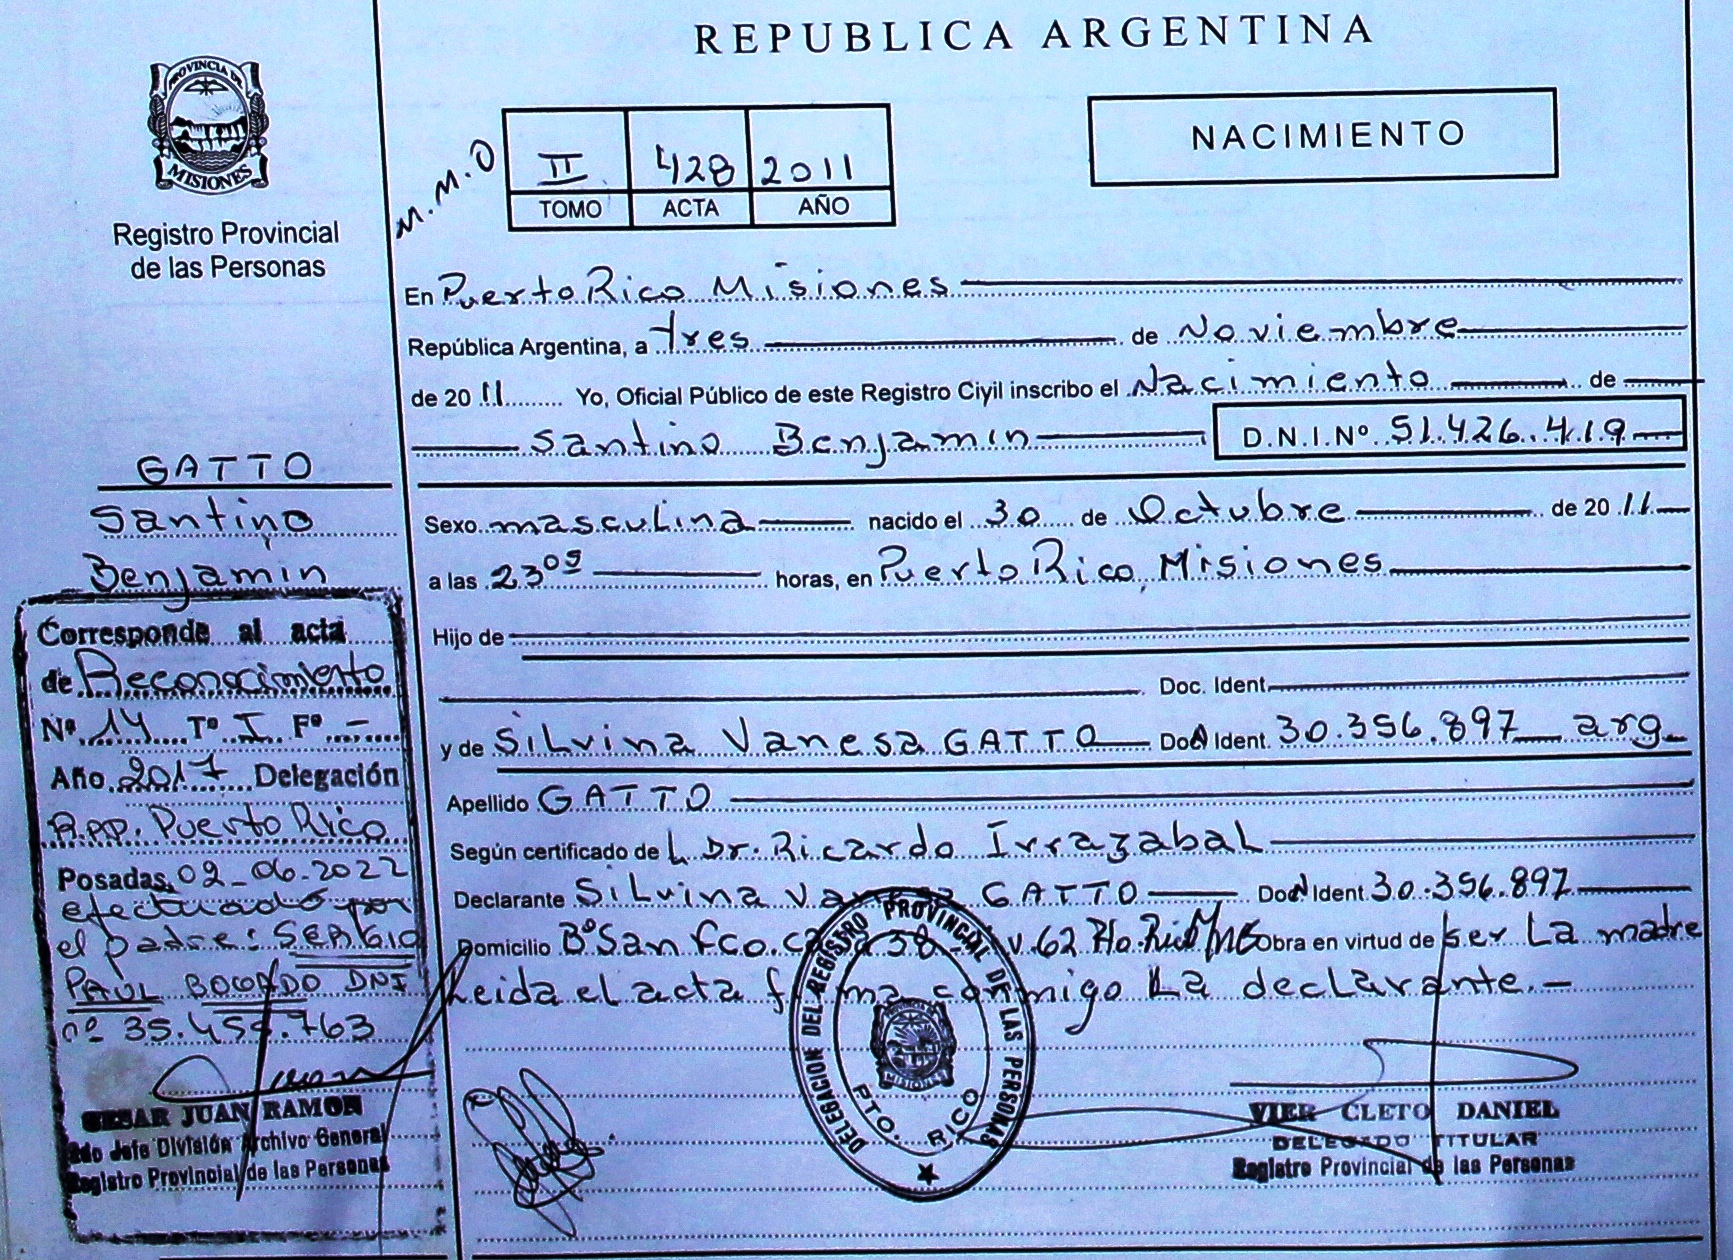 REPUBLICA ARGENTINA
PROVINCIA DE
MISIONES
Registro Provincial
de las Personas
M.M.O
II 428 2011
TOMO ACTA AÑO
NACIMIENTO
En Puerto Rico Misiones
República Argentina, a tres de Noviembre
de 2011 Yo, Oficial Público de este Registro Civil inscribo el Nacimiento de
Santino Benjamin D.N.I.Nº 51.426.419
Sexo masculina nacido el 30 de Octubre de 2011
a las 23 05 horas, en Puerto Rico, Misiones
Hijo de
Doc. Ident.
y de Silvina Vanesa GATTO Doc. Ident. 30.356.897 arg
Apellido GATTO
Según certificado de L Dr. Ricardo Irrazabal
Declarante Silvina Vanesa GATTO Doc. Ident. 30.356.897
Domicilio Bº San Fco. 38 v. 62 Pto. Rico Mnes Obra en virtud de ser La madre
Leida el acta firma conmigo La declarante.-
GATTO
Santino
Benjamin
Corresponde al acta
de Reconocimiento
Nº 14 Tº I Fº -
Año 2017 Delegación
R.P.P. Puerto Rico
Posadas, 02-06-2022
efectuado por
el padre: SERGIO
PAUL BOGADO DNI
nº 35.459.763
CESAR JUAN RAMON
2do Jefe División Archivo General
Registro Provincial de las Personas
DELEGACION DEL REGISTRO PROVINCIAL DE LAS PERSONAS
MISIONES
PTO. RICO
VIER CLETO DANIEL
DELEGADO TITULAR
Registro Provincial de las Personas